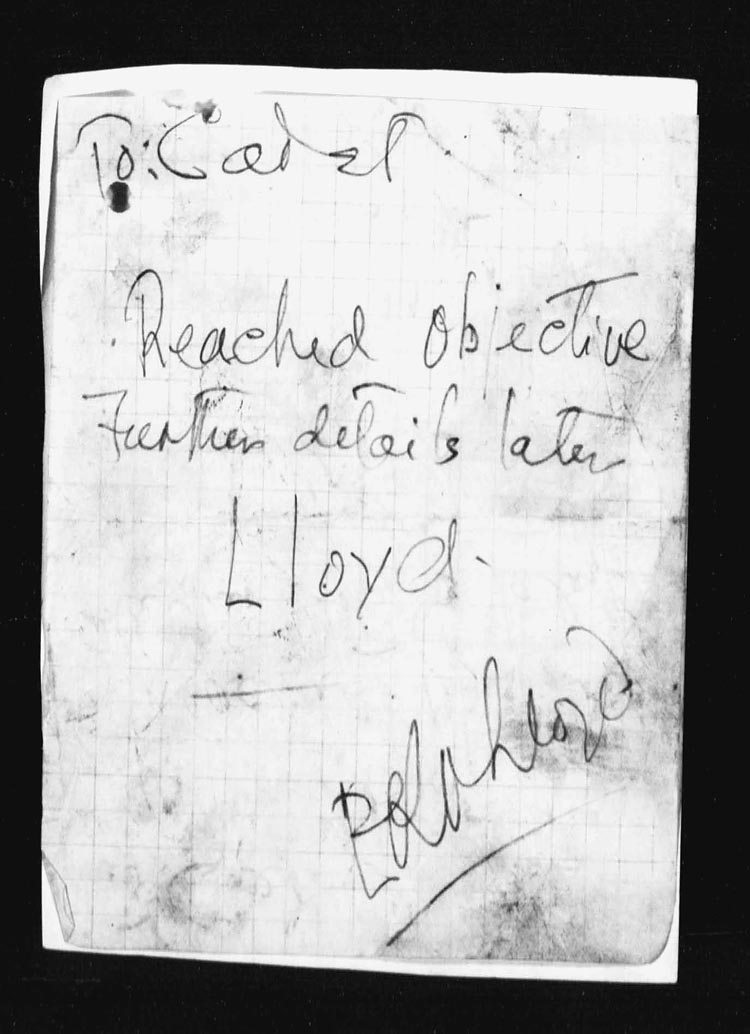 To: Cadet
Reached objective
Further details later
Lloyd.
Lloyd